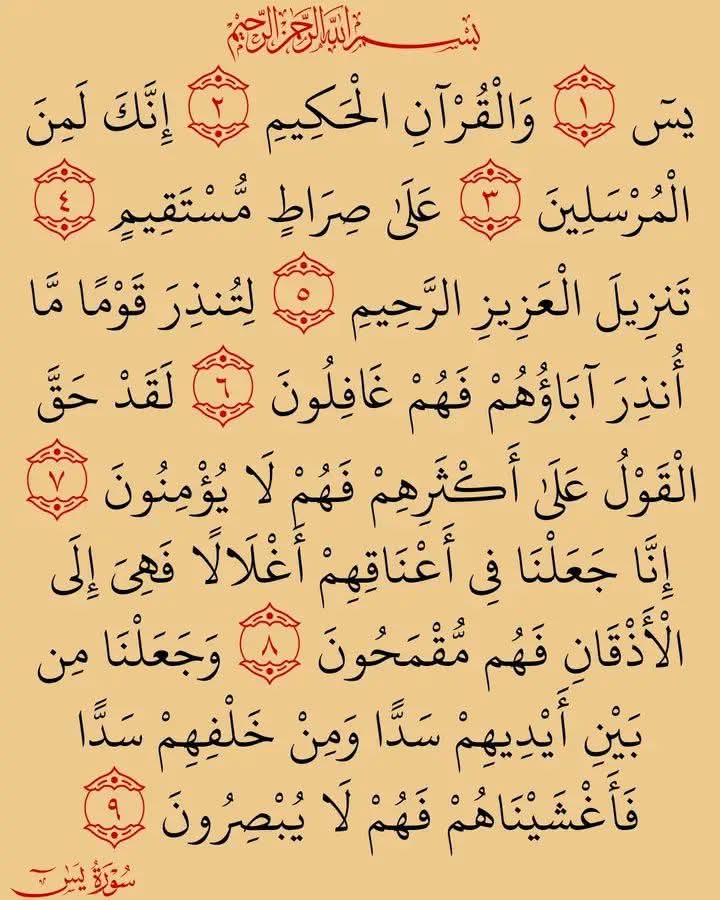 بسم الله الرحمن الرحيم
يسٓ ١ وَالْقُرْآنِ الْحَكِيمِ ٢ إِنَّكَ لَمِنَ
الْمُرْسَلِينَ ٣ عَلَىٰ صِرَاطٍ مُّسْتَقِيمٍ ٤
تَنزِيلَ الْعَزِيزِ الرَّحِيمِ ٥ لِتُنذِرَ قَوْمًا مَّا
أُنذِرَ آبَاؤُهُمْ فَهُمْ غَافِلُونَ ٦ لَقَدْ حَقَّ
الْقَوْلُ عَلَىٰ أَكْثَرِهِمْ فَهُمْ لَا يُؤْمِنُونَ ٧
إِنَّا جَعَلْنَا فِى أَعْنَاقِهِمْ أَغْلَالًا فَهِىَ إِلَى
الْأَذْقَانِ فَهُم مُّقْمَحُونَ ٨ وَجَعَلْنَا مِن
بَيْنِ أَيْدِيهِمْ سَدًّا وَمِنْ خَلْفِهِمْ سَدًّا
فَأَغْشَيْنَاهُمْ فَهُمْ لَا يُبْصِرُونَ ٩
سُوْرَةُ يسٓ